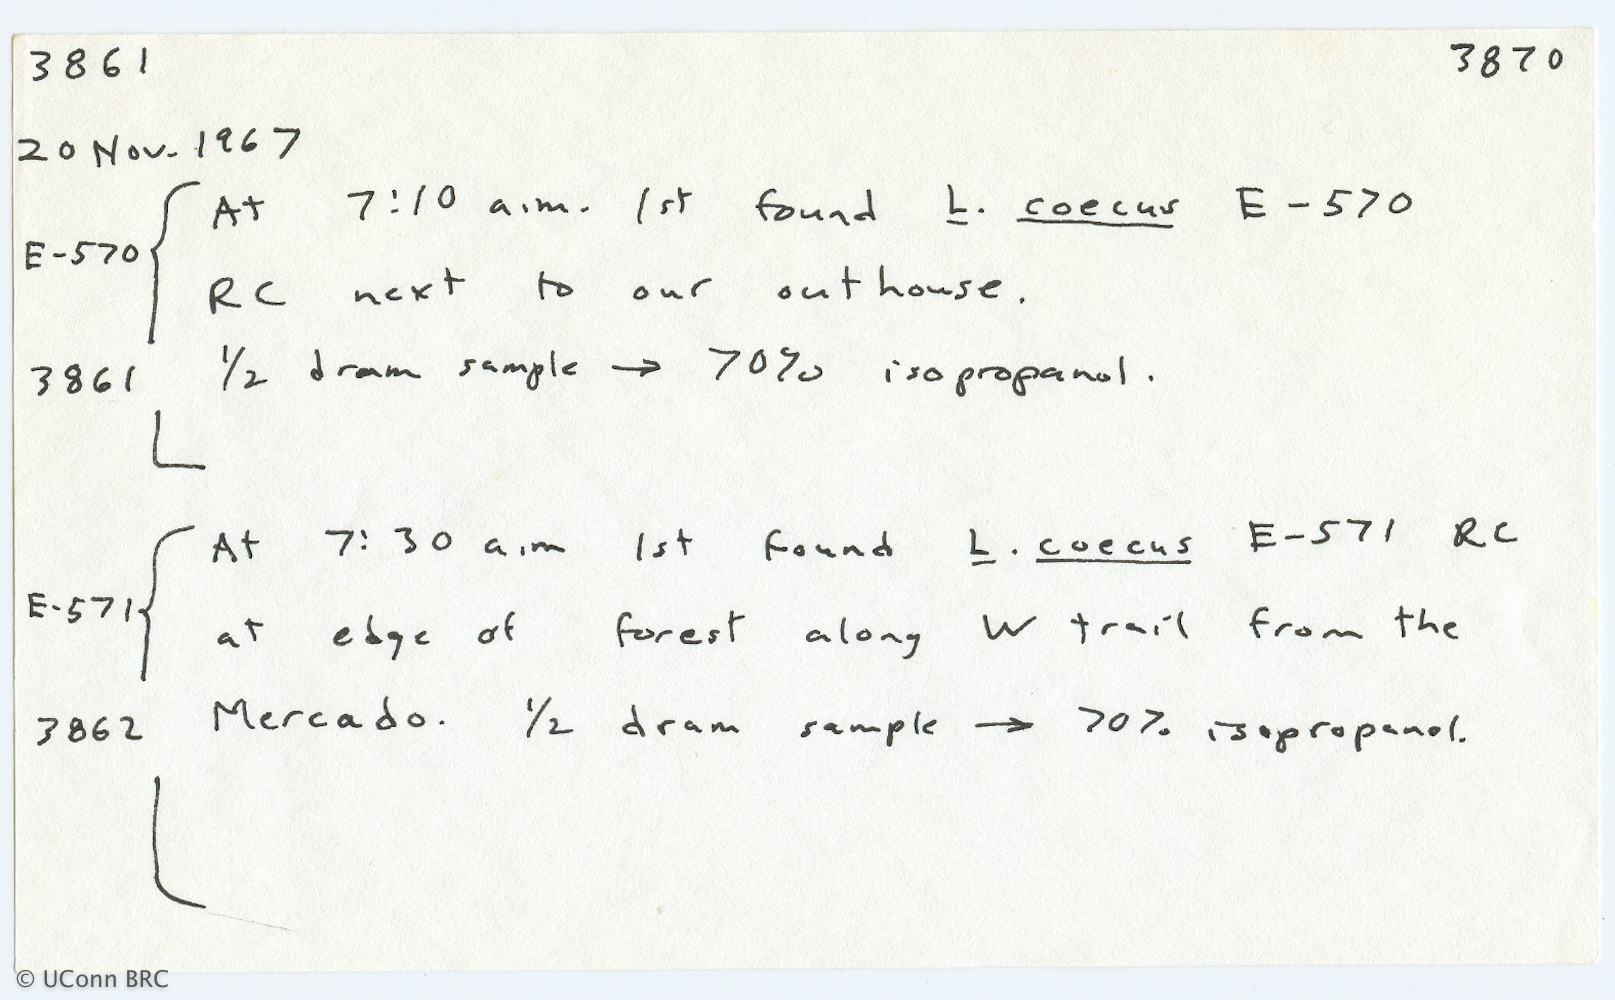 3861 3870
20 Nov. 1967
At 7:10 a.m. 1st found L. coecus E-570
E-570
RC next to our outhouse.
3861 1/2 dram sample → 70% isopropanol.
At 7:30 a.m 1st found L. coecus E-571 RC
E-571 at edge of forest along W trail from the
3862 Mercado. 1/2 dram sample → 70% isopropanol.
© UConn BRC